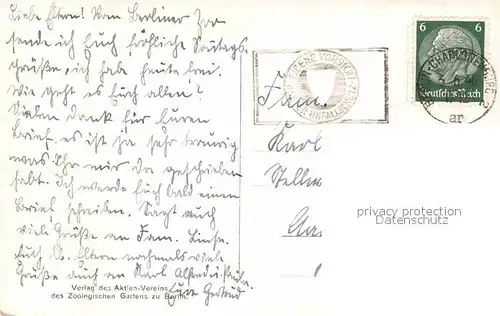 Liebe Eltern! Vom Berliner Zoo
sende ich Euch fröhliche Sonntags-
grüße, ich habe heute frei.
Wie geht es Euch allen?
Vielen Dank für Euren
Brief, es ist ja sehr traurig
was Ihr mir da geschrieben
habt. Ich werde Euch bald einen
Brief schreiben. Sagt auch
viele Grüße an Fam.
Euch lb. Eltern nochmals viele
Grüße auch an Karl
Eure Gertrud
Verlag des Aktien-Vereins
des Zoologischen Gartens zu Berlin.
6
Deutsches Reich
BERLIN-CHARLOTTENBURG 2
ar
Fam.
Karl
privacy protection
DATENSCHUTZ